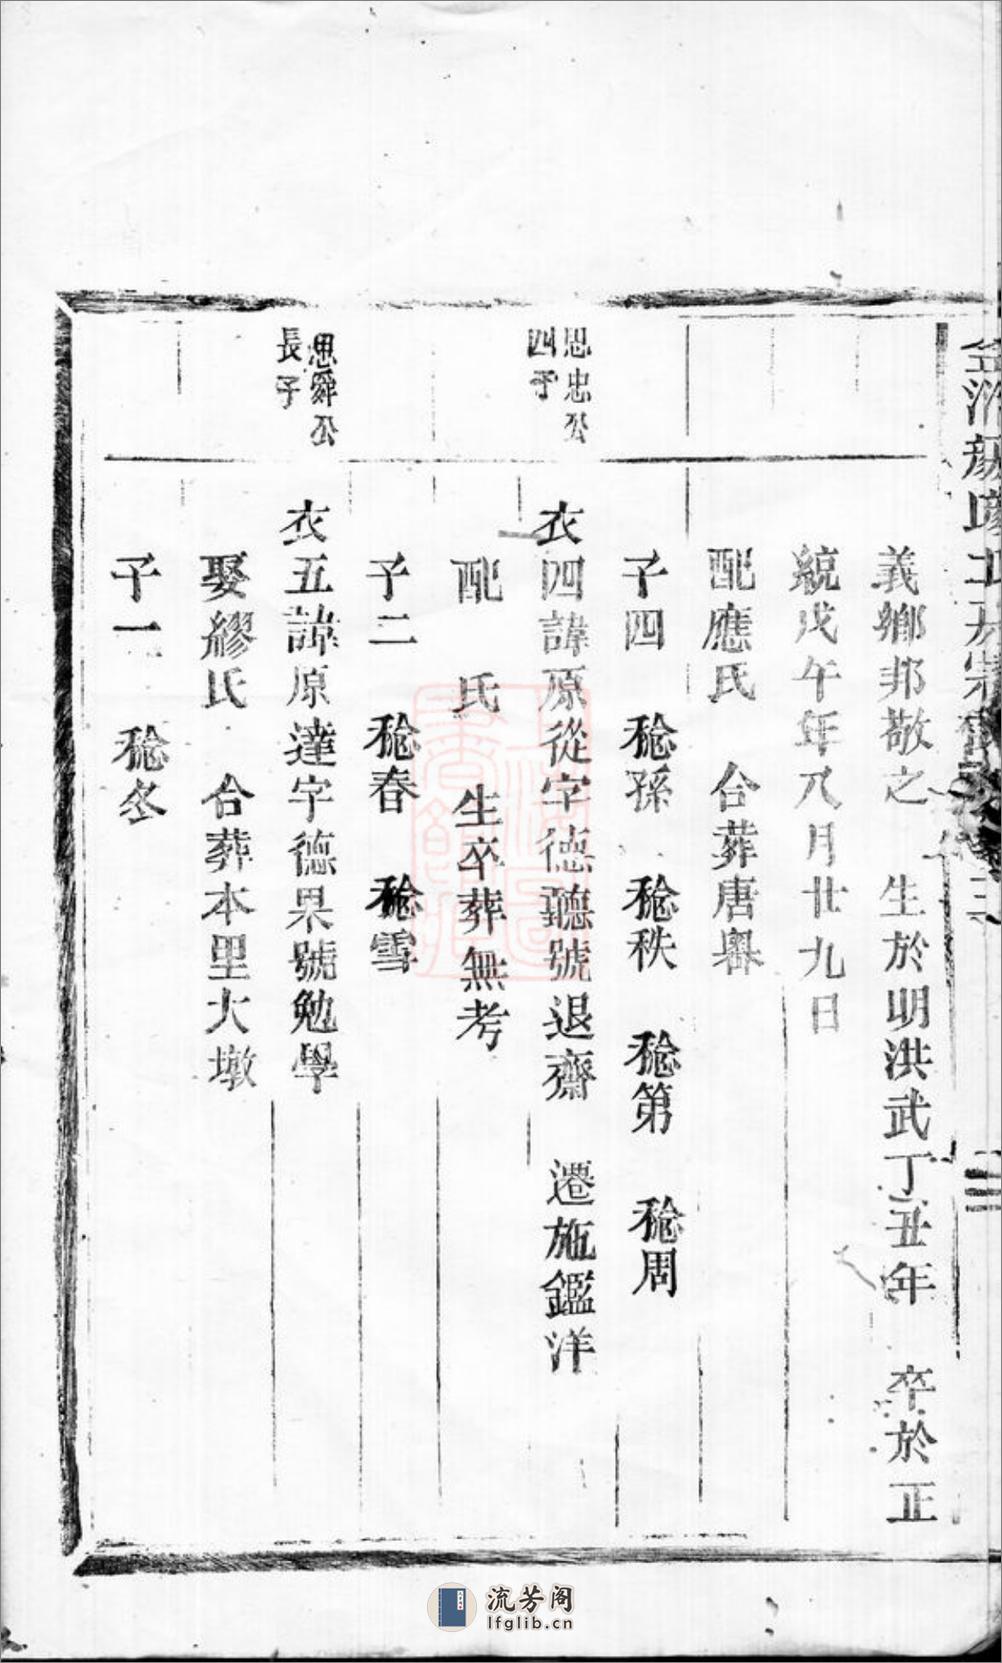 義鄉邦敬之 生於明洪武丁丑年 卒於正
統戊午年八月廿九日
配應氏 合葬唐嶴
子四 稔孫 稔秩 稔第 稔周
思忠公
四子
衣四諱原從字德聽號退齋 遷施鑑洋
配 氏 生卒葬無考
子二 稔春 稔雪
思舜公
長子
衣五諱原達字德果號勉學
娶繆氏 合葬本里大墩
子一 稔冬
流芳阁
lfglib.cn